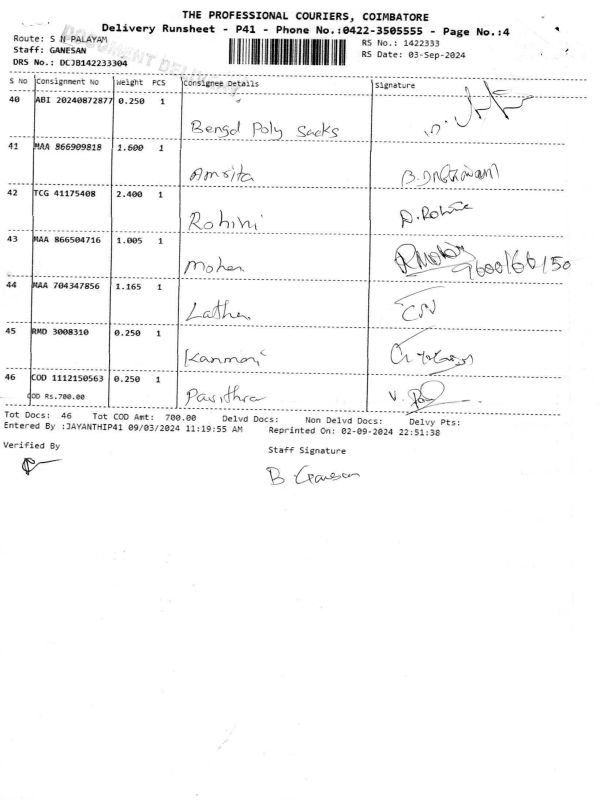 THE PROFESSIONAL COURIERS, COIMBATORE
Delivery Runsheet - P41 - Phone No.:0422-3505555 - Page No.:4
Route: S N PALAYAM
RS No.: 1422333
Staff: GANESAN
RS Date: 03-Sep-2024
DRS No.: DCJB142233304
DOCUMENT
S No Consignment No Weight PCS Consignee Details Signature
40 ABI 20240872877 0.250 1
Bengal Poly Sacks
41 MAA 866909818 1.600 1
Amrita
42 TCG 41175408 2.400 1
Rohini D. Rohini
43 MAA 866504716 1.005 1
Mohan
44 MAA 704347856 1.165 1
Latha
45 RMD 3008310 0.250 1
Kanmani
46 COD 1112150563 0.250 1
COD Rs.700.00 Pavithra
Tot Docs: 46 Tot COD Amt: 700.00 Delvd Docs: Non Delvd Docs: Delvy Pts:
Entered By :JAYANTHIP41 09/03/2024 11:19:55 AM Reprinted On: 02-09-2024 22:51:38
Verified By
Staff Signature
B Ganesan